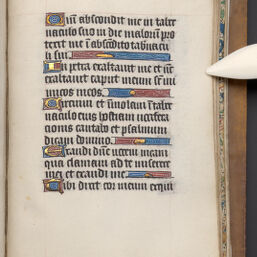 Qm̄ abscondit me in taber
naculo suo in die maloru pro
texit me i abscōdito tabnacu
li sui
In petra exaltauit me et nūc
exaltauit caput meum sr̄ ini
micos meos
Circuiui et īmolaui ī taber
naculo eius hostiam uocifera
tionis cantabo et psalmum
dicam domino
Exaudi dn̄e uocem meam
qua clamaui ad te miserere
mei et exaudi me
Tibi dixit cor meum exqui